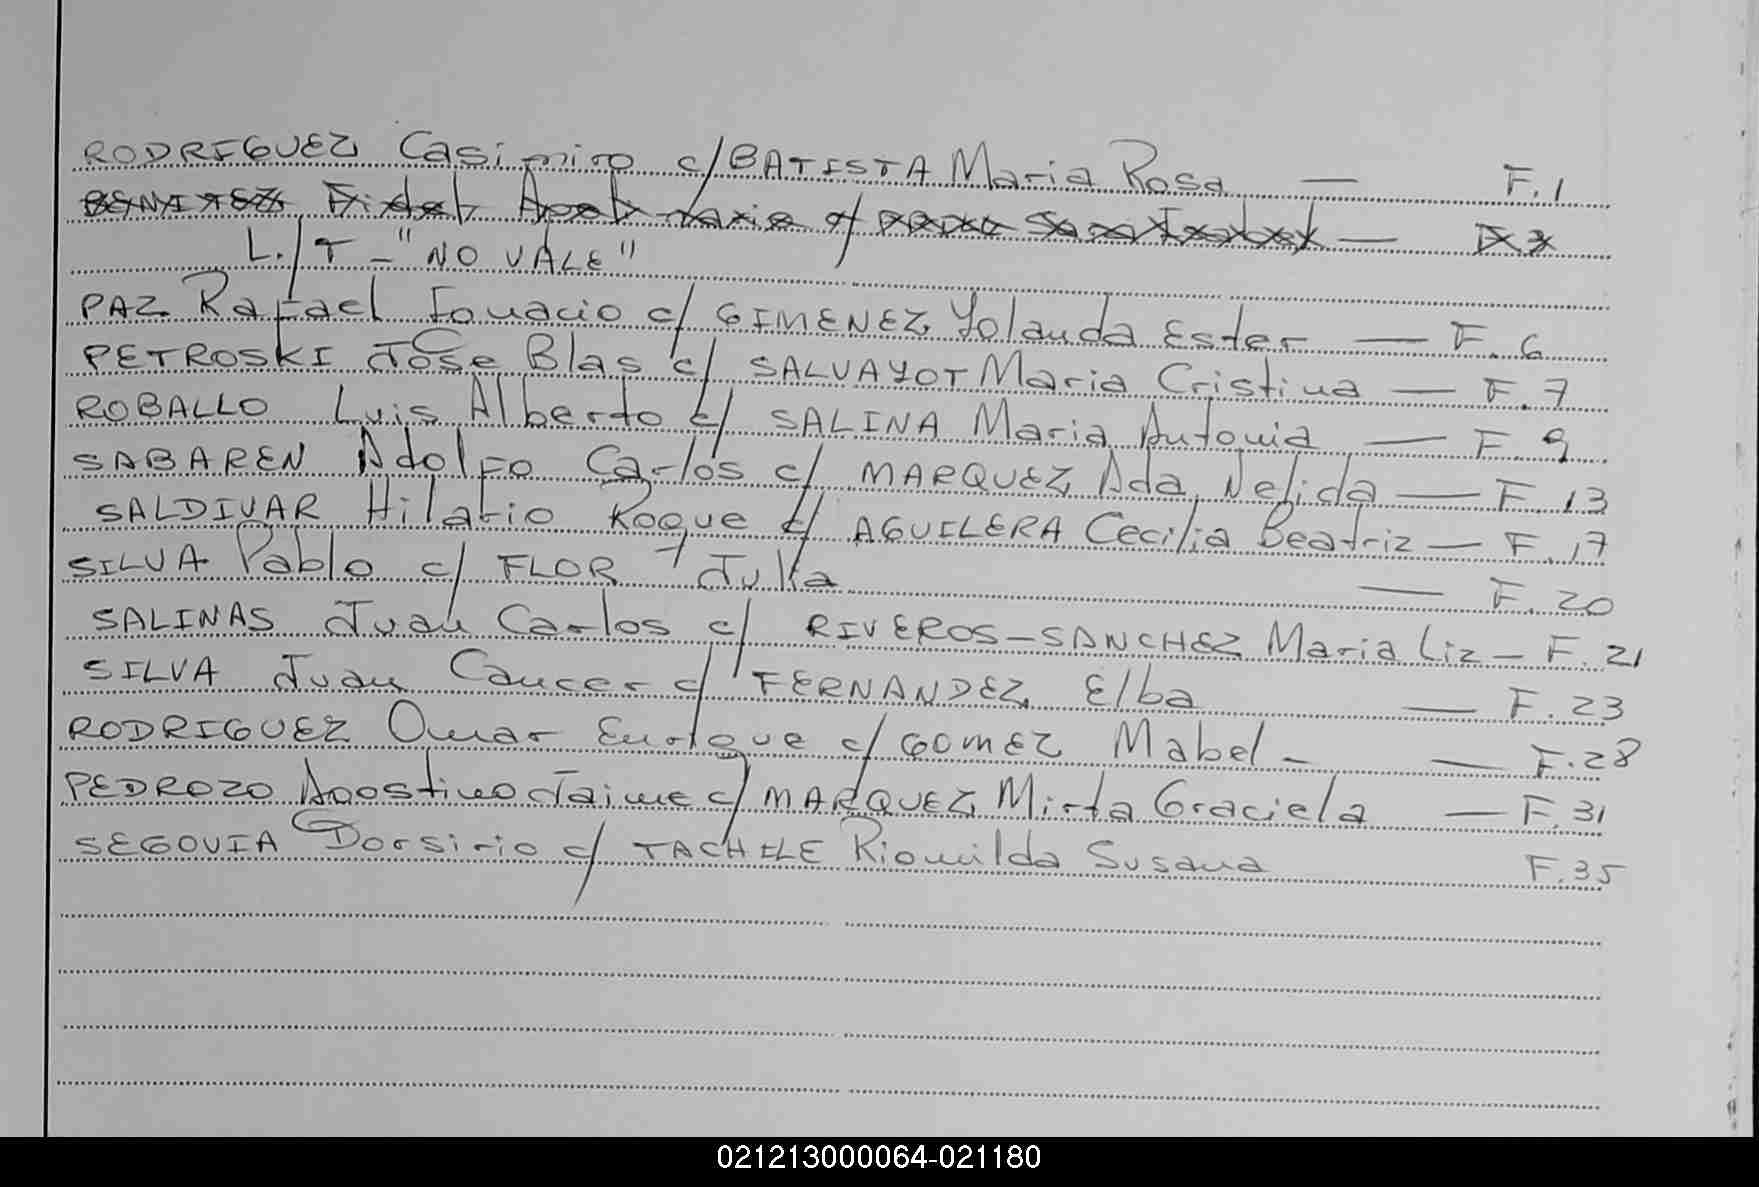 RODRIGUEZ Casimiro c/ BATISTA Maria Rosa — F. 1
BENITEZ Fidel c/ —
L./T - "NO VALE"
PAZ Rafael Ignacio c/ GIMENEZ Yolanda Ester — F. 6
PETROSKI Jose Blas c/ SALVAYOT Maria Cristina — F. 7
ROBALLO Luis Alberto c/ SALINA Maria Antonia — F. 9
SABAREN Adolfo Carlos c/ MARQUEZ Ada Nelida — F. 13
SALDIVAR Hilario Roque c/ AGUILERA Cecilia Beatriz — F. 17
SILVA Pablo c/ FLOR Julia — F. 20
SALINAS Juan Carlos c/ RIVEROS-SANCHEZ Maria Liz - F. 21
SILVA Juan Cancer c/ FERNANDEZ Elba — F. 23
RODRIGUEZ Omar Enrique c/ GOMEZ Mabel - — F. 28
PEDROZO Agostino Jaime c/ MARQUEZ Mirta Graciela — F. 31
SEGOVIA Dorsirio c/ TACHILE Riomilda Susana F. 35
021213000064-021180